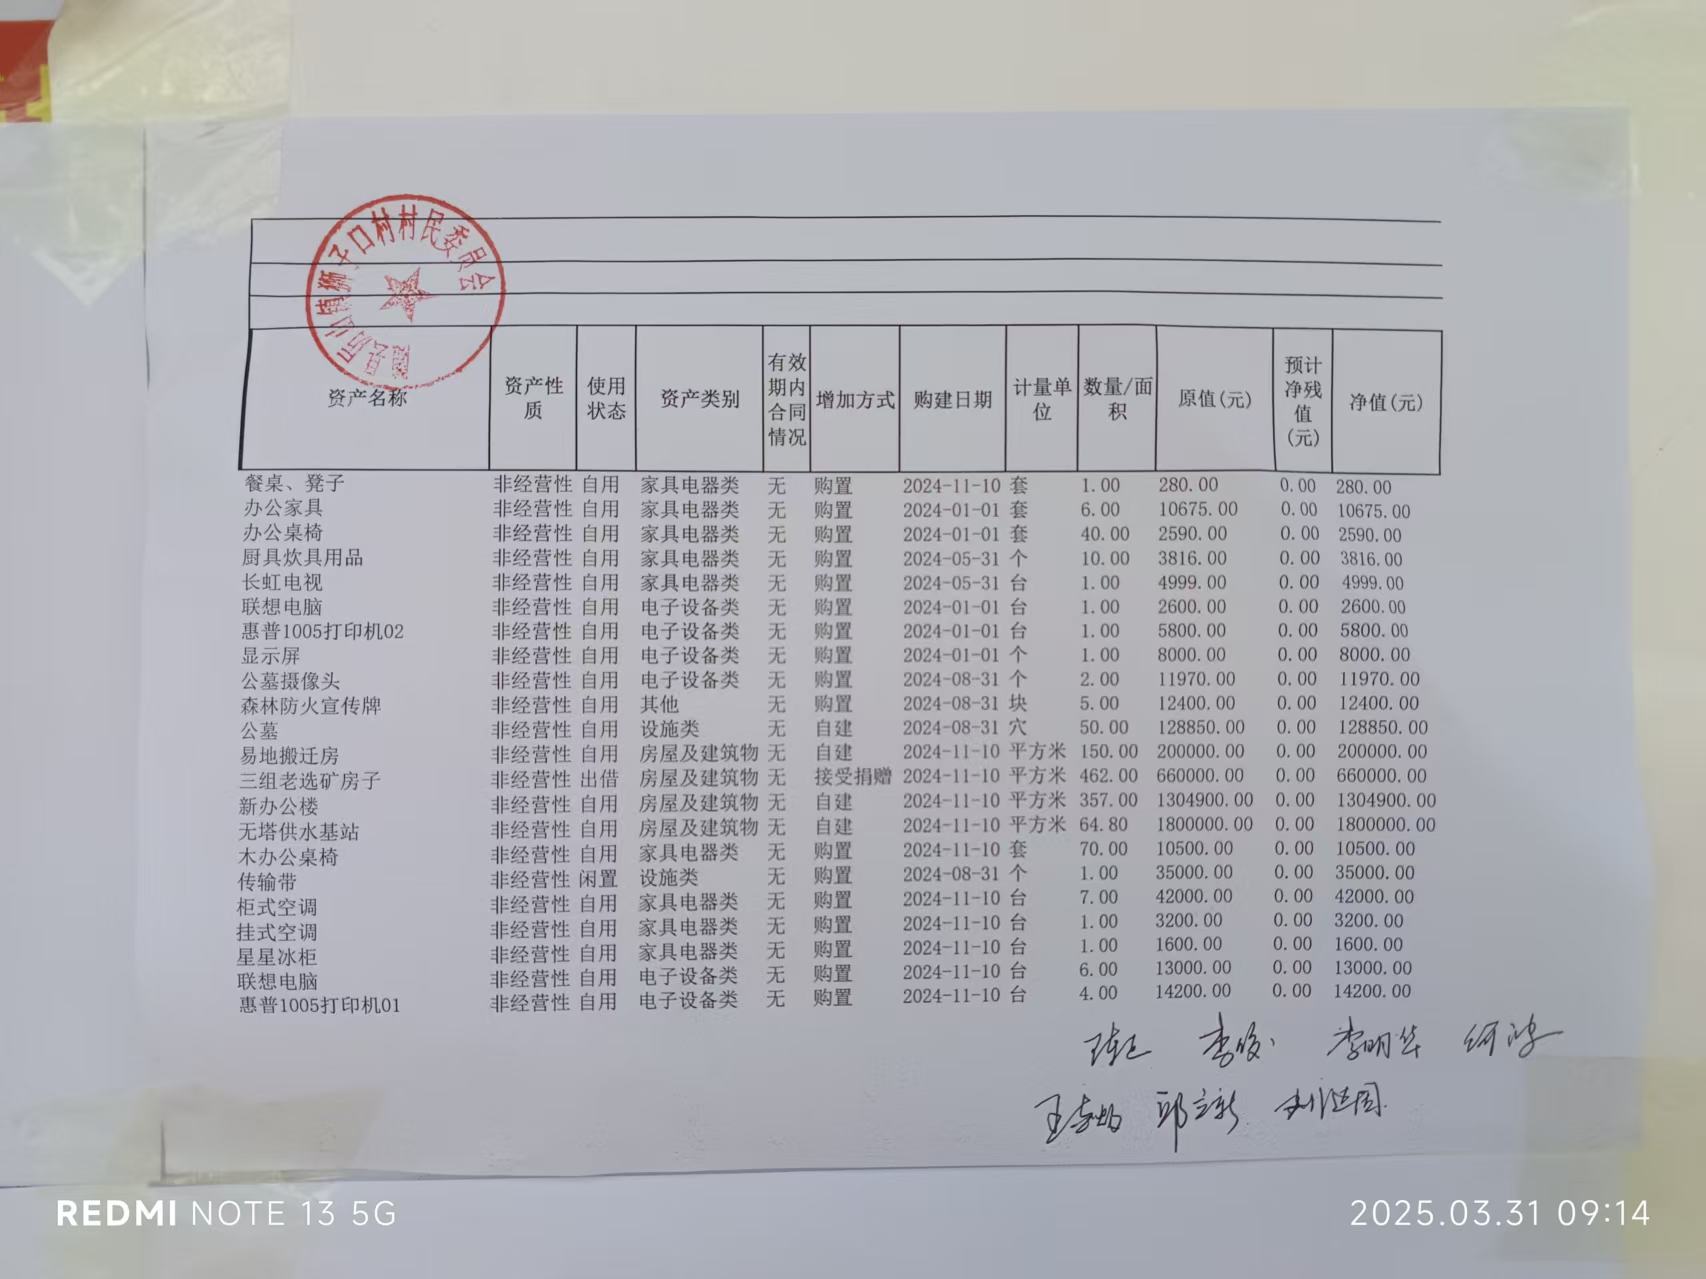 狮子口村村民委员会
资产名称 资产性质 使用状态 资产类别 有效期内合同情况 增加方式 购建日期 计量单位 数量/面积 原值(元) 预计净残值(元) 净值(元)
餐桌、凳子 非经营性 自用 家具电器类 无 购置 2024-11-10 套 1.00 280.00 0.00 280.00
办公家具 非经营性 自用 家具电器类 无 购置 2024-01-01 套 6.00 10675.00 0.00 10675.00
办公桌椅 非经营性 自用 家具电器类 无 购置 2024-01-01 套 40.00 2590.00 0.00 2590.00
厨具炊具用品 非经营性 自用 家具电器类 无 购置 2024-05-31 个 10.00 3816.00 0.00 3816.00
长虹电视 非经营性 自用 家具电器类 无 购置 2024-05-31 台 1.00 4999.00 0.00 4999.00
联想电脑 非经营性 自用 电子设备类 无 购置 2024-01-01 台 1.00 2600.00 0.00 2600.00
惠普1005打印机02 非经营性 自用 电子设备类 无 购置 2024-01-01 台 1.00 5800.00 0.00 5800.00
显示屏 非经营性 自用 电子设备类 无 购置 2024-01-01 个 1.00 8000.00 0.00 8000.00
公墓摄像头 非经营性 自用 电子设备类 无 购置 2024-08-31 个 2.00 11970.00 0.00 11970.00
森林防火宣传牌 非经营性 自用 其他 无 购置 2024-08-31 块 5.00 12400.00 0.00 12400.00
公墓 非经营性 自用 设施类 无 自建 2024-08-31 穴 50.00 128850.00 0.00 128850.00
易地搬迁房 非经营性 自用 房屋及建筑物 无 自建 2024-11-10 平方米 150.00 200000.00 0.00 200000.00
三组老选矿房子 非经营性 出借 房屋及建筑物 无 接受捐赠 2024-11-10 平方米 462.00 660000.00 0.00 660000.00
新办公楼 非经营性 自用 房屋及建筑物 无 自建 2024-11-10 平方米 357.00 1304900.00 0.00 1304900.00
无塔供水基站 非经营性 自用 房屋及建筑物 无 自建 2024-11-10 平方米 64.80 1800000.00 0.00 1800000.00
木办公桌椅 非经营性 自用 家具电器类 无 购置 2024-11-10 套 70.00 10500.00 0.00 10500.00
传输带 非经营性 闲置 设施类 无 购置 2024-08-31 个 1.00 35000.00 0.00 35000.00
柜式空调 非经营性 自用 家具电器类 无 购置 2024-11-10 台 7.00 42000.00 0.00 42000.00
挂式空调 非经营性 自用 家具电器类 无 购置 2024-11-10 台 1.00 3200.00 0.00 3200.00
星星冰柜 非经营性 自用 家具电器类 无 购置 2024-11-10 台 1.00 1600.00 0.00 1600.00
联想电脑 非经营性 自用 电子设备类 无 购置 2024-11-10 台 6.00 13000.00 0.00 13000.00
惠普1005打印机01 非经营性 自用 电子设备类 无 购置 2024-11-10 台 4.00 14200.00 0.00 14200.00
李明华
REDMI NOTE 13 5G 2025.03.31 09:14